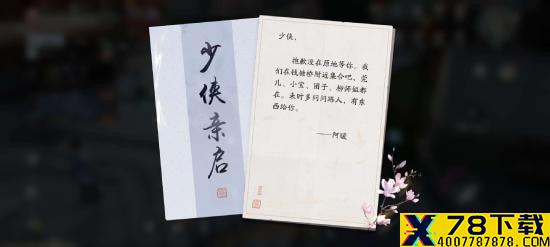 少侠亲启
少侠，
抱歉没在原地等你。我
们在钱塘桥附近集合吧，莞
儿、小宝、团子、杨师姐都
在。来时多问问路人，有东
西给你。
——阿暖
78下载
4007787878.COM